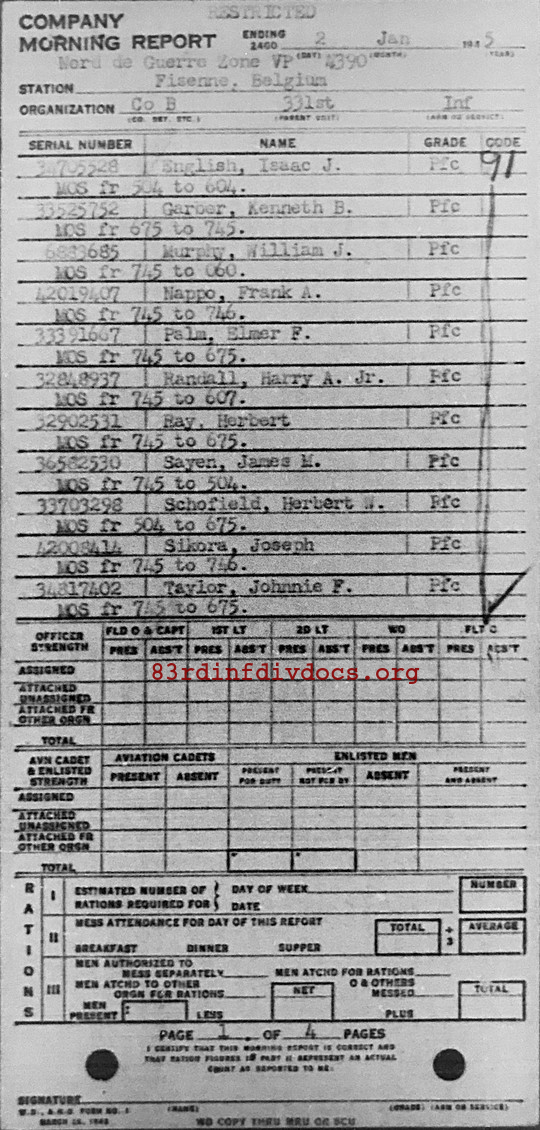 RESTRICTED
COMPANY
MORNING REPORT ENDING 2400 2 Jan 1945
(DAY) (MONTH) (YEAR)
Nord de Guerre Zone VP 4390
STATION Fisenne, Belgium
ORGANIZATION Co B 331st Inf
(CO. DET. ETC.) (PARENT UNIT) (ARM OR SERVICE)
SERIAL NUMBER NAME GRADE CODE
34705528 English, Isaac J. Pfc 91
MOS fr 504 to 604.
33525752 Garber, Kenneth B. Pfc
MOS fr 675 to 745.
6883685 Murphy, William J. Pfc
MOS fr 745 to 060.
42019407 Nappo, Frank A. Pfc
MOS fr 745 to 746.
33391667 Palm, Elmer F. Pfc
MOS fr 745 to 675.
32848937 Randall, Harry A. Jr. Pfc
MOS fr 745 to 607.
32902531 Ray, Herbert Pfc
MOS fr 745 to 675.
36582530 Sayen, James M. Pfc
MOS fr 745 to 504.
33703298 Schofield, Herbert W. Pfc
MOS fr 504 to 675.
42008414 Sikora, Joseph Pfc
MOS fr 745 to 746.
34817402 Taylor, Johnnie F. Pfc
MOS fr 745 to 675.
OFFICER STRENGTH FLD O & CAPT 1ST LT 2D LT WO FLT O
PRES ABS'T PRES ABS'T PRES ABS'T PRES ABS'T PRES ABS'T
ASSIGNED
83rdinfdivdocs.org
ATTACHED UNASSIGNED
ATTACHED FR OTHER ORGN
TOTAL
AVN CADET & ENLISTED STRENGTH AVIATION CADETS ENLISTED MEN
PRESENT ABSENT PRESENT FOR DUTY PRESENT NOT FOR DY ABSENT PRESENT AND ABSENT
ASSIGNED
ATTACHED UNASSIGNED
ATTACHED FR OTHER ORGN
TOTAL
RATIONS
I ESTIMATED NUMBER OF RATIONS REQUIRED FOR DAY OF WEEK DATE NUMBER
II MESS ATTENDANCE FOR DAY OF THIS REPORT TOTAL ÷ 3 AVERAGE
BREAKFAST DINNER SUPPER
III MEN AUTHORIZED TO MESS SEPARATELY MEN ATCHD FOR RATIONS
MEN ATCHD TO OTHER ORGN FOR RATIONS NET O & OTHERS MESSED TOTAL
MEN PRESENT LESS PLUS
PAGE 1 OF 4 PAGES
I CERTIFY THAT THIS MORNING REPORT IS CORRECT AND
THAT RATION FIGURES IN PART II REPRESENT AN ACTUAL
COUNT AS REPORTED TO ME:
SIGNATURE
W.D., A.G.O. FORM NO. 1 (NAME) (GRADE) (ARM OR SERVICE)
NO COPY THRU MRU OR SCU